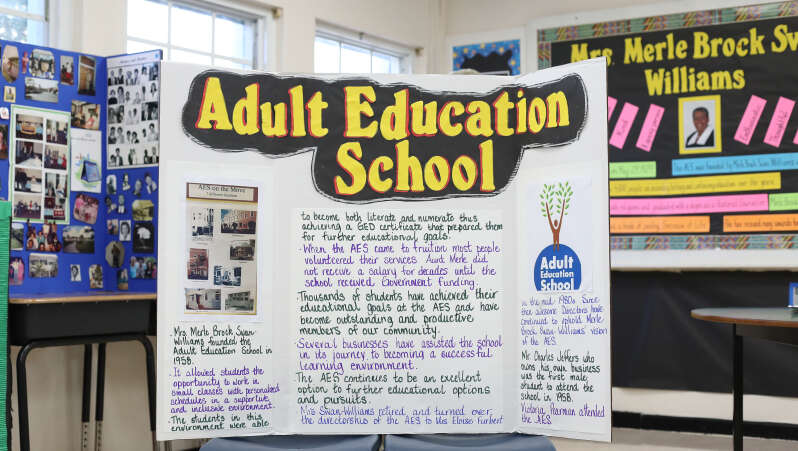 Adult Education
School
AES on the Move
Mrs Merle Brock Swan-
Williams founded the
Adult Education School in
1958.
It allowed students the
opportunity to work in
small classes with personalized
schedules in a supportive
and inclusive environment.
The students in this
environment were able
to become both literate and numerate thus
achieving a GED certificate that prepared them
for further educational goals.
When the AES came to fruition most people
volunteered their services. Aunt Merle did
not receive a salary for decades until the
school received Government funding.
Thousands of students have achieved their
educational goals at the AES and have
become outstanding and productive
members of our community.
Several businesses have assisted the school
in its journey to becoming a successful
learning environment.
The AES continues to be an excellent
option to further educational options
and pursuits.
Mrs Swan-Williams retired and turned over
the directorship of the AES to Mrs Eloise Furbert
Adult
Education
School
in the mid 1980s. Since
that awesome Directors have
continued to uphold Merle
Brock Swan-Williams' vision
of the AES.
Mr. Charles Jeffers who
owns his own business
was the first male
student to attend the
school in 1958.
Victoria Harman attended
the AES.
Mrs. Merle Brock Swan
Williams